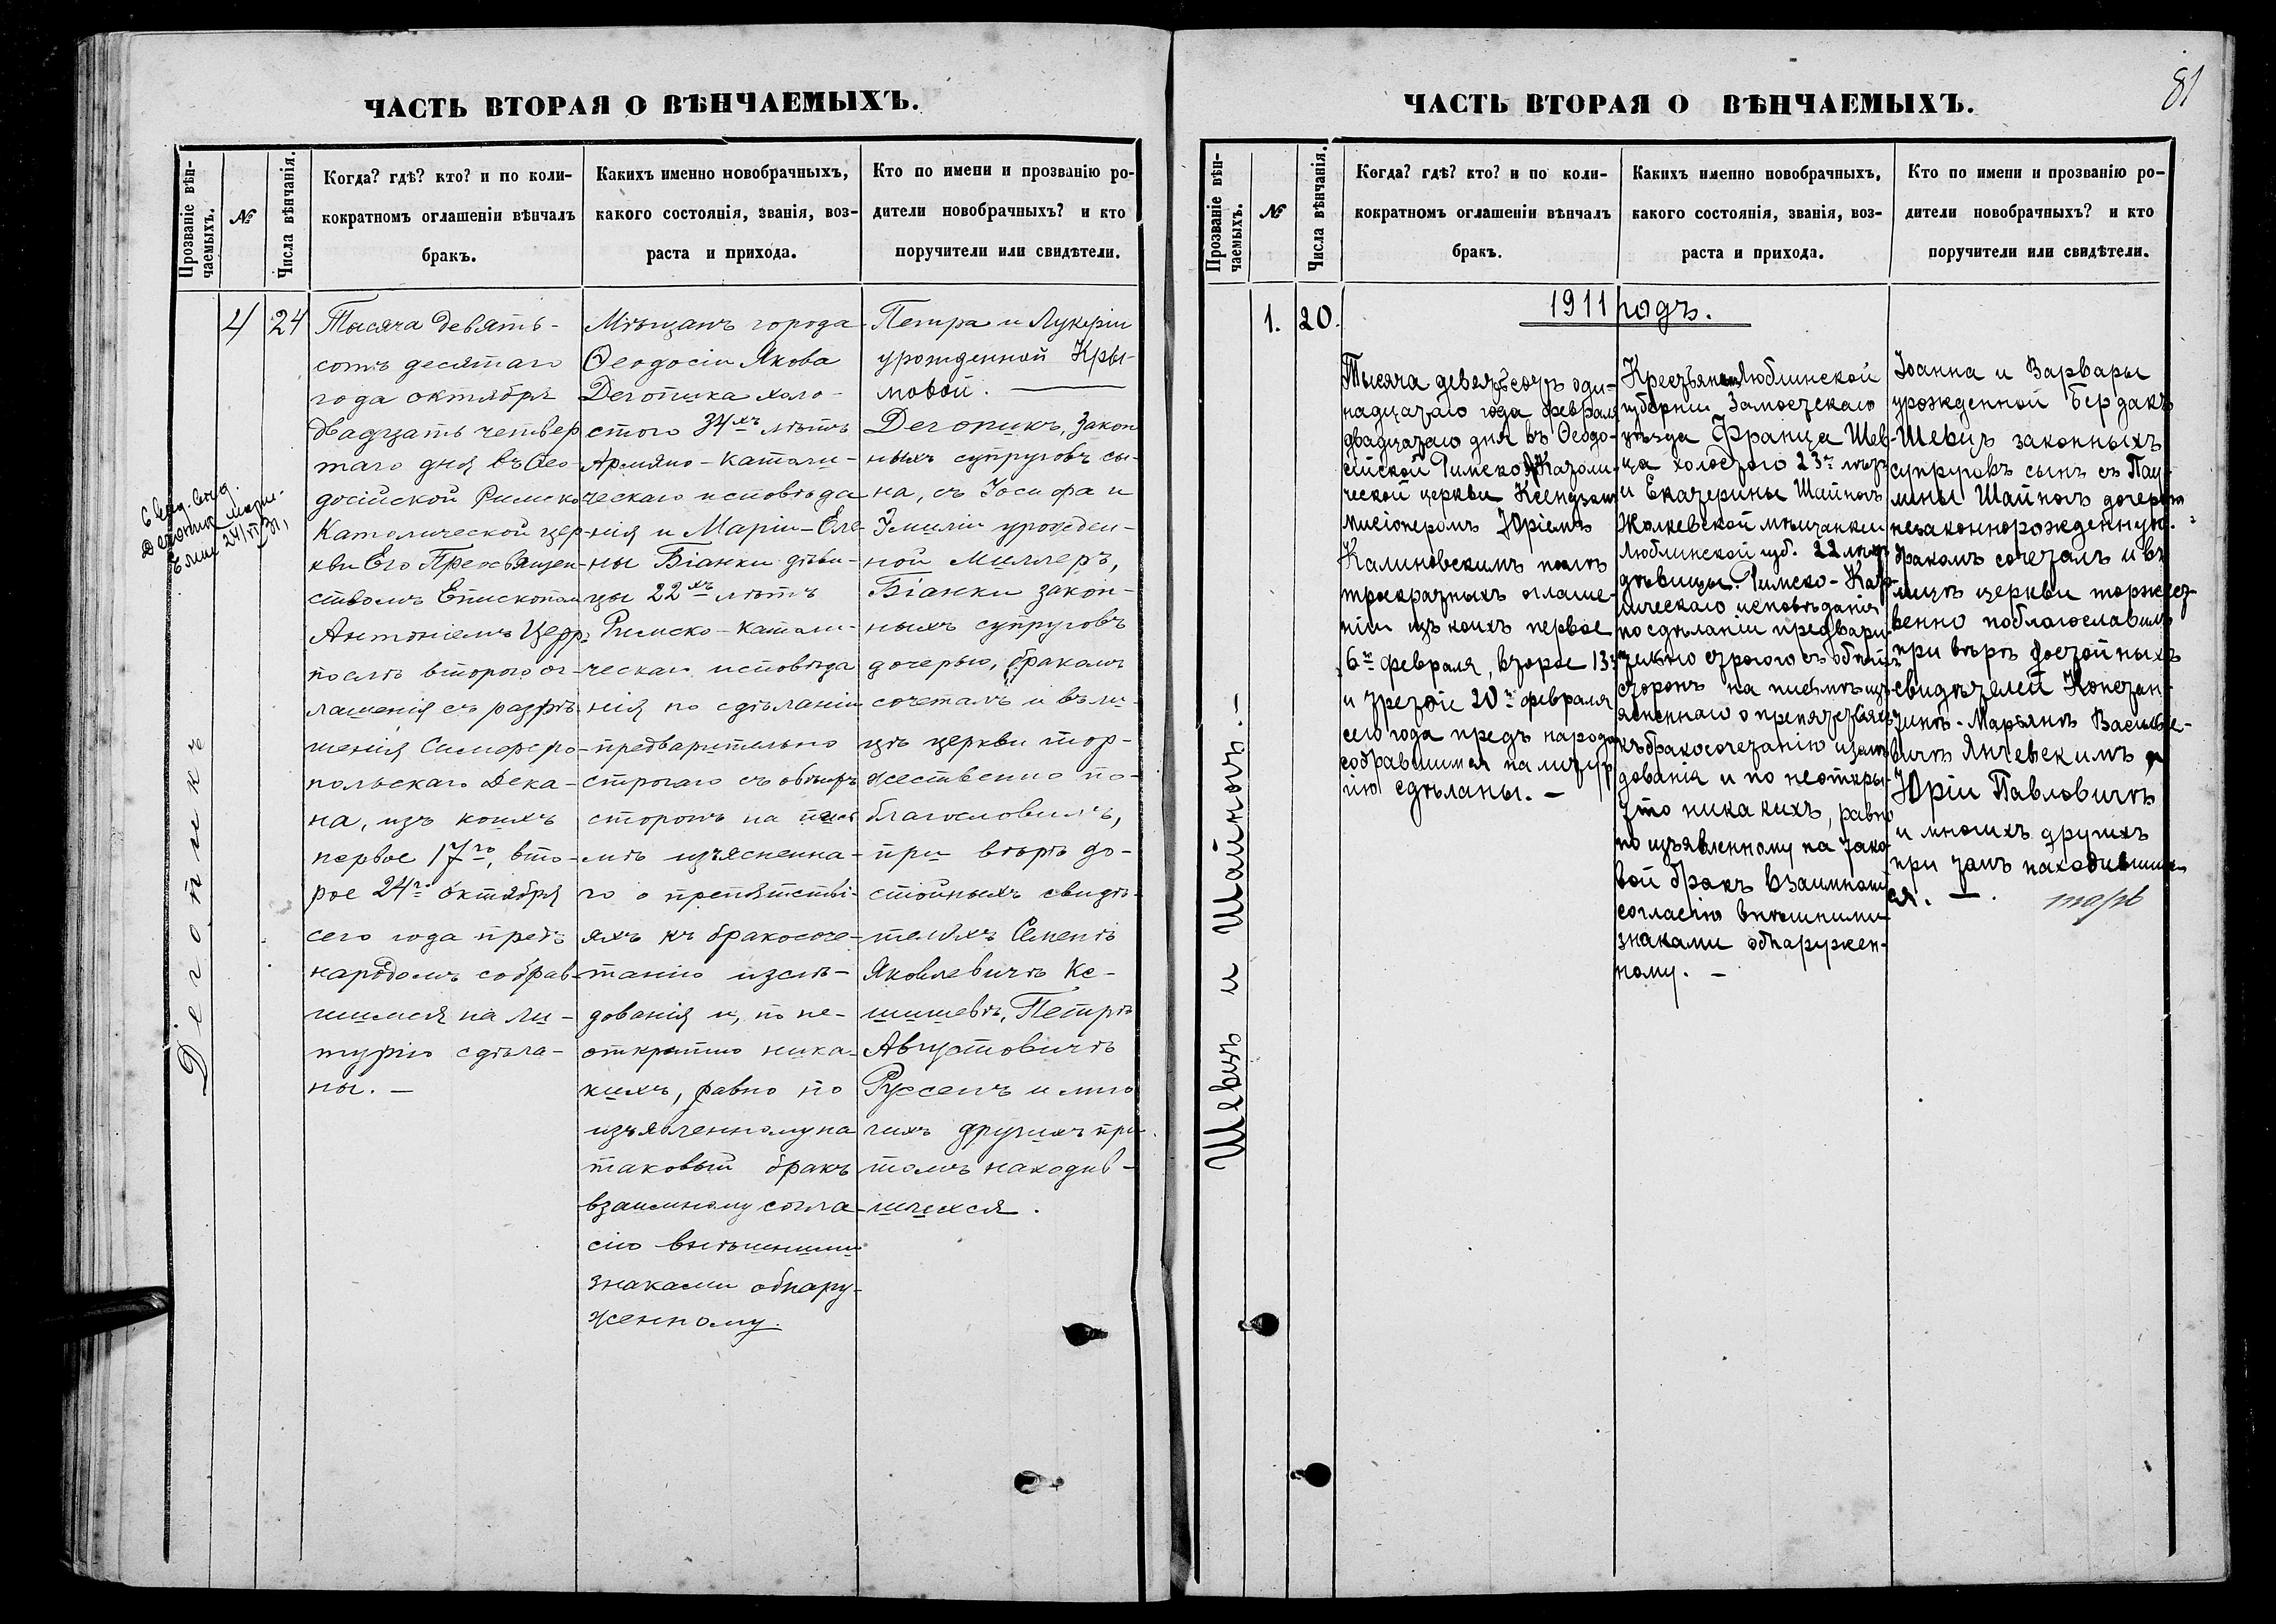 81
ЧАСТЬ ВТОРАЯ О ВѢНЧАЕМЫХЪ.
Прозваніе вѣн-
чаемыхъ.
№
Числа вѣнчанія.
Когда? гдѣ? кто? и по коли-
кократномъ оглашеніи вѣнчалъ
бракъ.
Какихъ именно новобрачныхъ,
какого состоянія, званія, воз-
раста и прихода.
Кто по имени и прозванію ро-
дители новобрачныхъ? и кто
поручители или свидѣтели.
Дегопикъ
4
24
Тысяча девять-
сотъ десятаго
года октября
двадцать четвер
таго дня въ Ѳео-
досійской Римско
Католической цер-
кви Его Преосвящен-
ствомъ Епископом
Антоніемъ Церр
послѣ второго ог-
лашенія съ разрѣ-
шенія Симферо-
польскаго Дека-
на, изъ коихъ
первое 17го, вто-
рое 24го октября
сего года предъ
народомъ собрав-
шимся на ли-
тургію сдѣла-
ны. —
Мѣщанъ города
Ѳеодосіи Якова
Дегопика холо-
стого 34хъ лѣтъ
Армяно-Католи-
ческаго исповѣда
нія и Маріи-Еле-
ны Біанки дѣви-
цы 22хъ лѣтъ
Римско-Католи-
ческаго исповѣда
нія по сдѣланіи
предварительно
строгаго съ обѣихъ
сторонъ на пись
мѣ изъясненна-
го о препятстві-
яхъ къ бракосоче-
танію изслѣ-
дованія и, по не-
открытію ника-
кихъ, равно по
изъявленному на
таковый бракъ
взаимному согла-
сію внѣшними
знаками обнару-
женному.
Петра и Лукеріи
урожденной Кры-
мовой.
Дегопикъ, закон
ныхъ супруговъ сы-
на, съ Іосифа и
Эмиліи урожден-
ной Миллеръ,
Біанки закон-
ныхъ супруговъ
дочерью, бракомъ
сочеталъ и въ ли-
цѣ церкви тор-
жественно по-
благословилъ,
при вѣрѣ до-
стойныхъ свидѣ-
теляхъ Семенѣ
Яковлевичѣ Ке-
шишевѣ, Петрѣ
Августовичѣ
Руссенъ и мно
гихъ другихъ при
томъ находив-
шихся.
ЧАСТЬ ВТОРАЯ О ВѢНЧАЕМЫХЪ.
Прозваніе вѣн-
чаемыхъ.
№
Числа вѣнчанія.
Когда? гдѣ? кто? и по коли-
кократномъ оглашеніи вѣнчалъ
бракъ.
Какихъ именно новобрачныхъ,
какого состоянія, званія, воз-
раста и прихода.
Кто по имени и прозванію ро-
дители новобрачныхъ? и кто
поручители или свидѣтели.
1911 годъ.
Шевцъ и Шайнохъ. —
1.
20.
Тысяча девятьсотъ оди-
надцатаго года февраля
двадцатаго дня въ Ѳеодо-
сійской Римско-Католи-
ческой церкви Ксендзомъ
Мисіонеромъ Юріемъ
Калиновскимъ послѣ
троекратныхъ оглаше-
ній изъ коихъ первое
6го февраля, второе 13го
и третіе 20го февраля
сего года предъ народом
собравшимся на литур
гію сдѣланы. —
Крестьянъ Люблинской
губерніи Замостскаго
уѣзда Франца Шев-
ца холостого 23хъ лѣтъ
и Екатерины Шайнохъ
Жолкевской мѣщанки
Люблинской губ. 22 лѣтъ
дѣвицы. Римско-Като-
лическаго исповѣданія
по сдѣланіи предвари-
тельно строгого съ обѣихъ
сторонъ на письмѣ изъ-
ясненнаго о препятствіяхъ
къ бракосочетанію изслѣ
дованія и по неоткры-
тію никакихъ, равно
по изъявленному на тако-
вой бракъ взаимному
согласію внѣшними
знаками обнаружен-
ному. —
Іоанна и Варвары
урожденной Бердакъ
Шевцъ законныхъ
супруговъ сынъ съ Пау-
лины Шайнохъ дочерью
незаконнорожденную.
бракомъ сочеталъ и въ
лицѣ церкви торжест-
венно поблагословилъ
при вѣрѣ достойныхъ
свидѣтелей Констан-
тинѣ-Марьянѣ Василье-
вичѣ Янчевскимъ и
Юріи Павловичѣ
и многихъ другихъ
при томъ находивших
ся. —